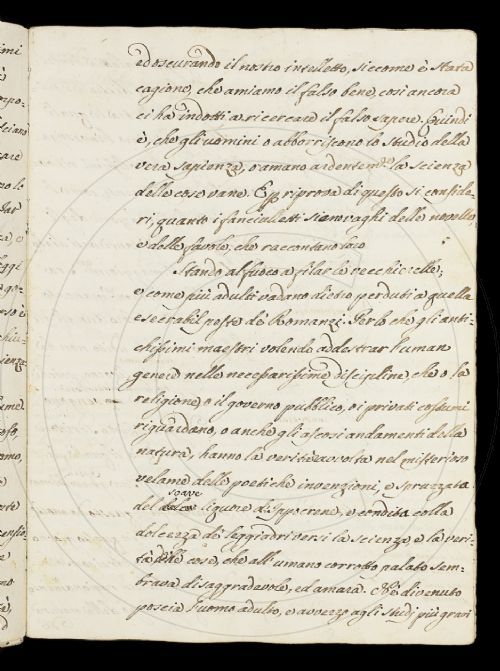 ed oscurando il nostro intelletto, siccome è stata
cagione, che amiamo il falso bene, così ancora
ci ha indotti a ricercare il falso sapere. Quindi
è, che gli uomini o abborriscono lo studio della
vera sapienza, o amano ardentem.te la scienza
delle cose vane. E p riprova di questo si conside-
ri, quanto i fanciulletti siam vaghi delle novelle,
e delle favole, che raccontano loro
Stando al fuoco a filar le vecchierelle;
e come più adulti vadano dietro perduti a quella
esecrabil peste de Romanzi. Perlo che gli anti-
chissimi maestri volendo addestrar l'uman
genere nelle necessarissime discipline, che o la
religione, o il governo pubblico, o i privati costumi
riguardano, o anche gli ascosi andamenti della
natura, hanno la verità avvolta nel misterioso
velame delle poetiche invenzioni, e spruzzata
del soave liquore d'Ippocrene, e condita colla
dolcezza de leggiadri versi la scienza e la veri-
tà delle cose, che all'umano corrotto palato sem-
brava disaggradevole, ed amara. Nè divenuto
poscia l'uomo adulto, e avvezzo agli studj più gravi